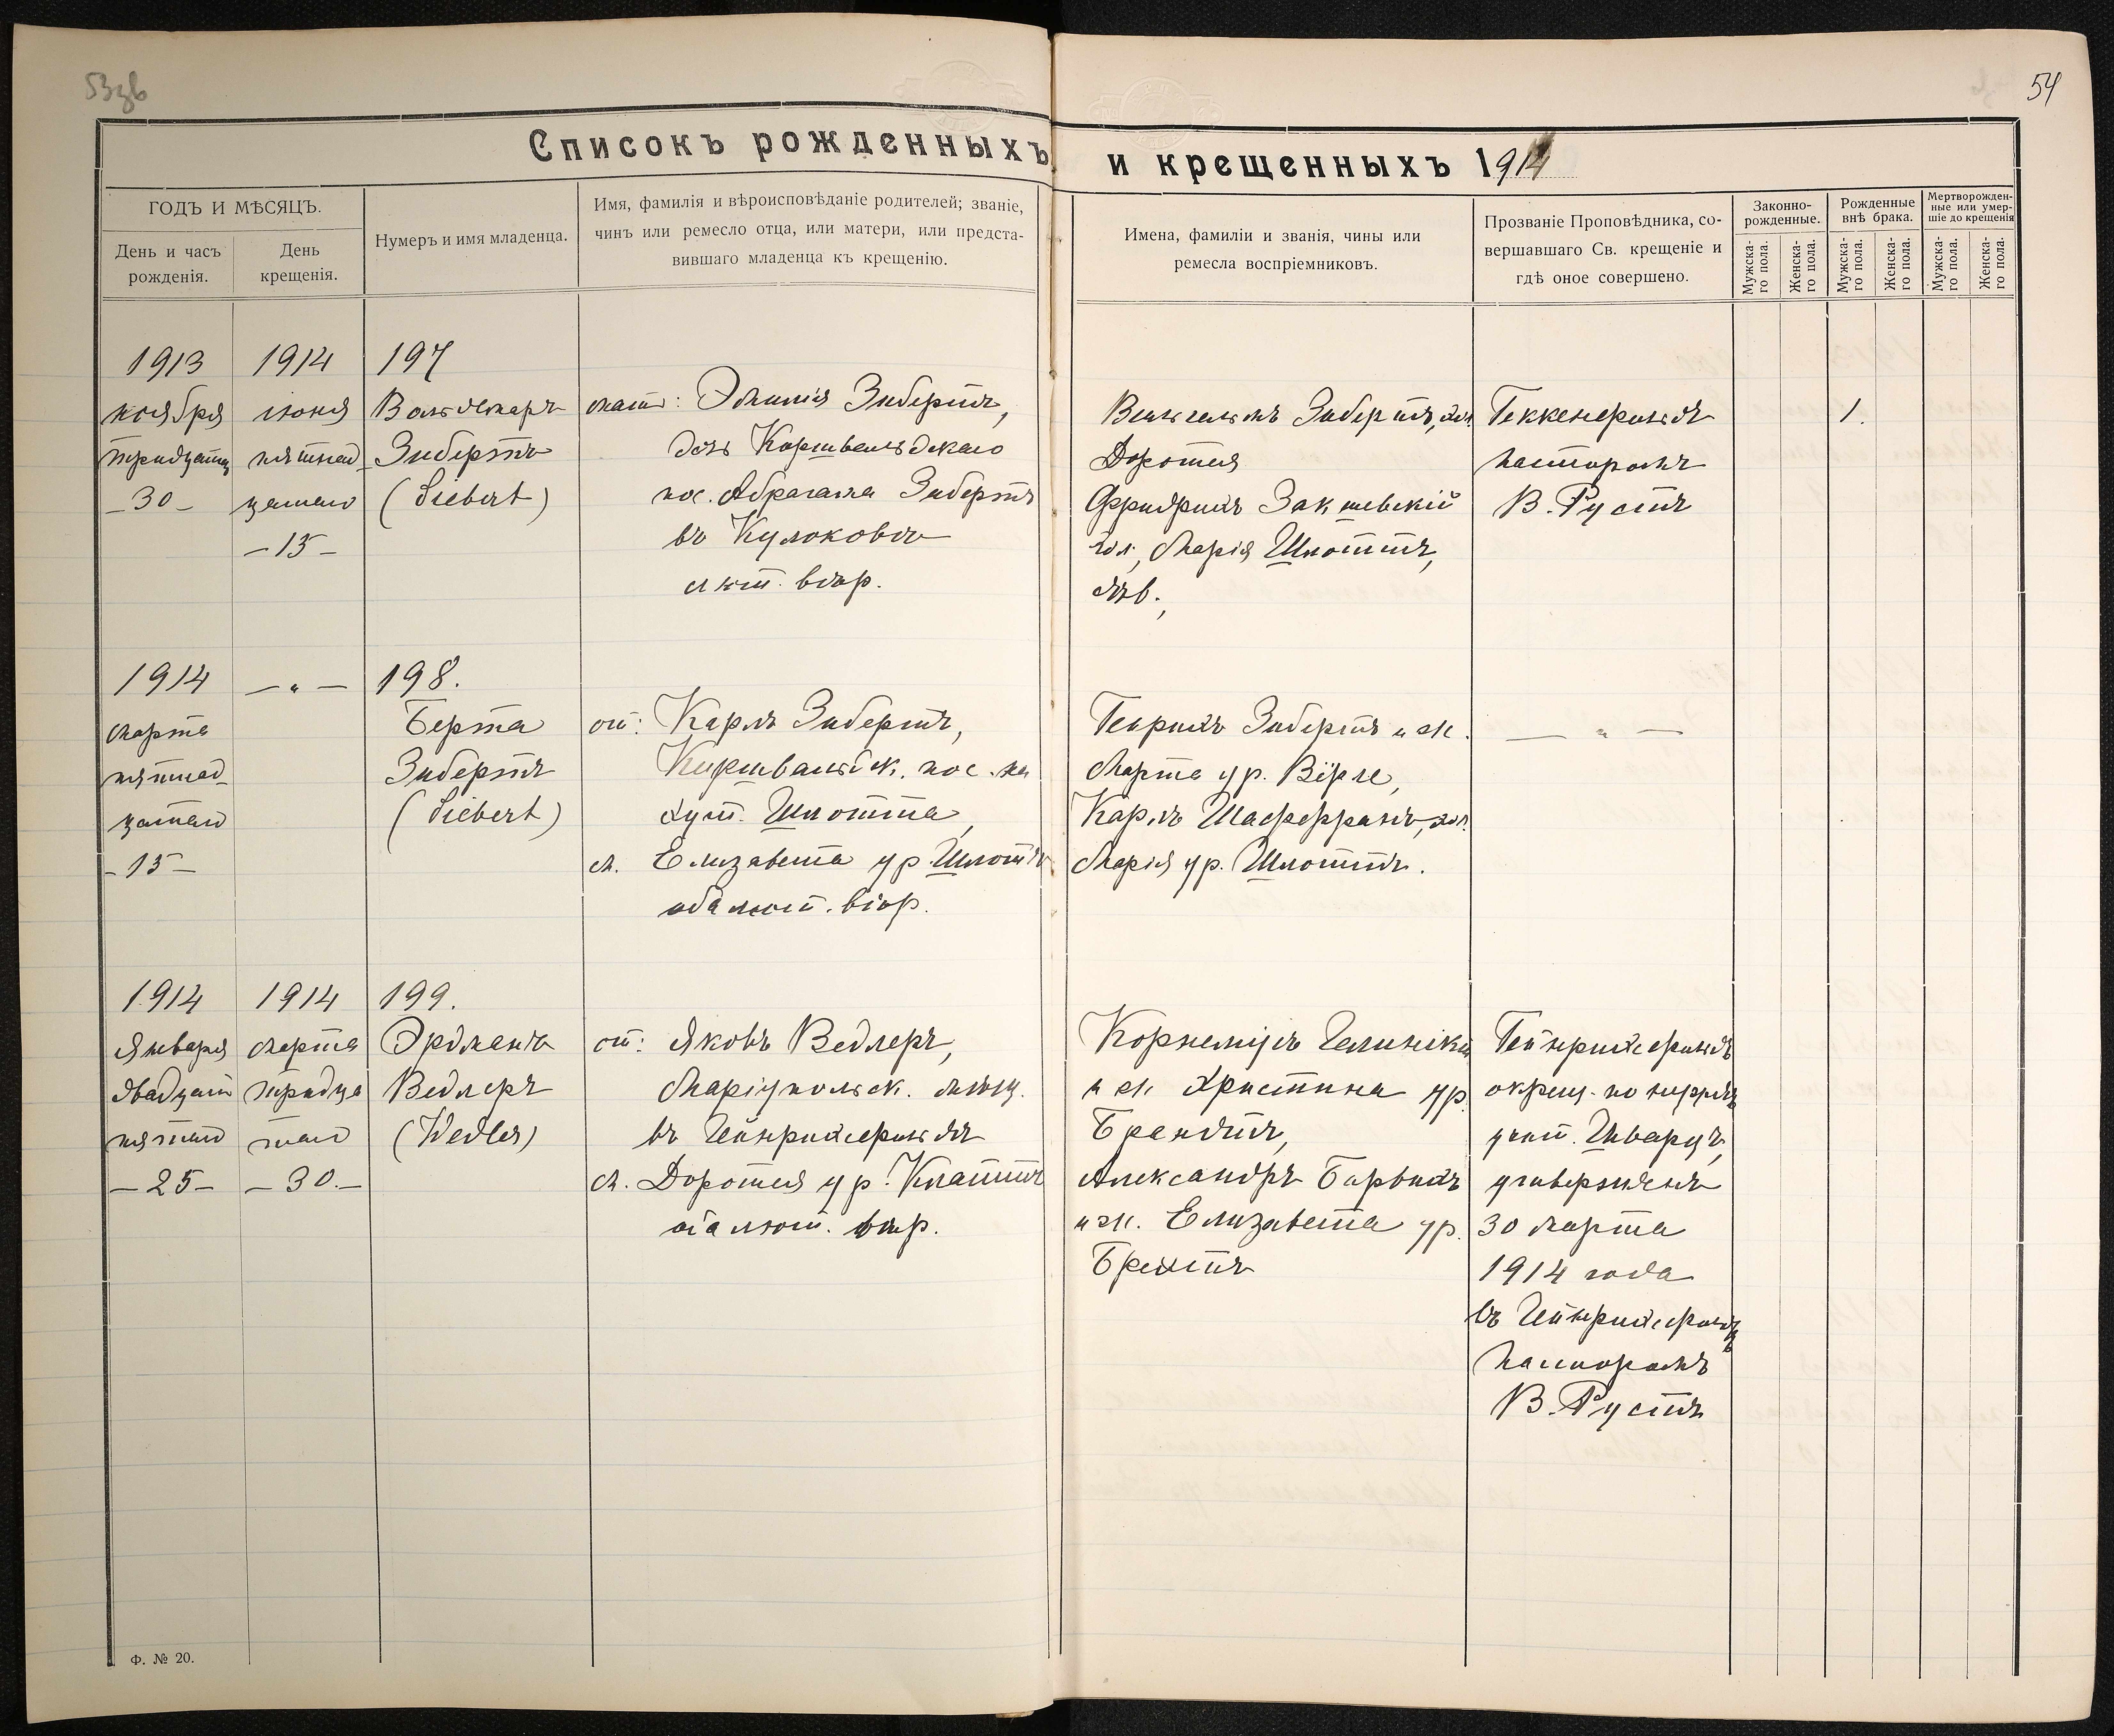 53зв
54
Списокъ рожденныхъ и крещенныхъ 1914
ГОДЪ И МѢСЯЦЪ.
День и часъ
рожденія.
День
крещенія.
Нумеръ и имя младенца.
Имя, фамилія и вѣроисповѣданіе родителей; званіе,
чинъ или ремесло отца, или матери, или предста-
вившаго младенца къ крещенію.
Имена, фамиліи и званія, чины или
ремесла воспріемниковъ.
Прозваніе Проповѣдника, со-
вершавшаго Св. крещеніе и
гдѣ оное совершено.
Законно-
рожденные.
Рожденные
внѣ брака.
Мертворожден-
ные или умер-
шіе до крещенія
Мужска-
го пола.
Женска-
го пола.
Мужска-
го пола.
Женска-
го пола.
Мужска-
го пола.
Женска-
го пола.
1913
ноября
тридцатаго
-30-
1914
іюня
пятнад-
цатаго
-15-
197
Вольдемаръ
Зибертъ
(Siebert)
мать: Эмилія Зибертъ,
дочь Каршвальдскаго
пос. Абрагама Зибертъ
въ Кулоковѣ
лют. вѣр.
Вильгельмъ Зибертъ, хол.
Доротея
Фридрихъ Закшевскій
хол., Марія Шлоттъ,
дѣв.,
Теккенфельдъ
пасторомъ
В. Рустъ
1.
1914
марта
пятнад-
цатаго
-15-
— " —
198.
Берта
Зибертъ
(Siebert)
от: Карлъ Зибертъ,
пос. на
хут. Шлотта,
м. Елизавета ур Шлоттъ
оба лют. вѣр.
Генрихъ Зибертъ и ж.
Марта ур.
Карлъ хол.
Марія ур. Шлоттъ.
— " —
1914
января
двадцать
пятаго
-25-
1914
марта
тридца
таго
-30.-
199.
Эрдманъ
Ведлеръ
(Wedler)
от: Яковъ Ведлеръ,
Маріупольск. мѣщ.
въ
м. Доротея ур. Клаттъ
оба лют. вѣр.
Корнеліусъ
и ж. Христина ур.
Брандтъ,
Александръ
и ж. Елизавета ур.
Брехтъ
окрещ. по нуждѣ
учит. Шварцъ,
утвержденъ
30 марта
1914 года
въ
пасторомъ
В. Рустъ
Ф. № 20.